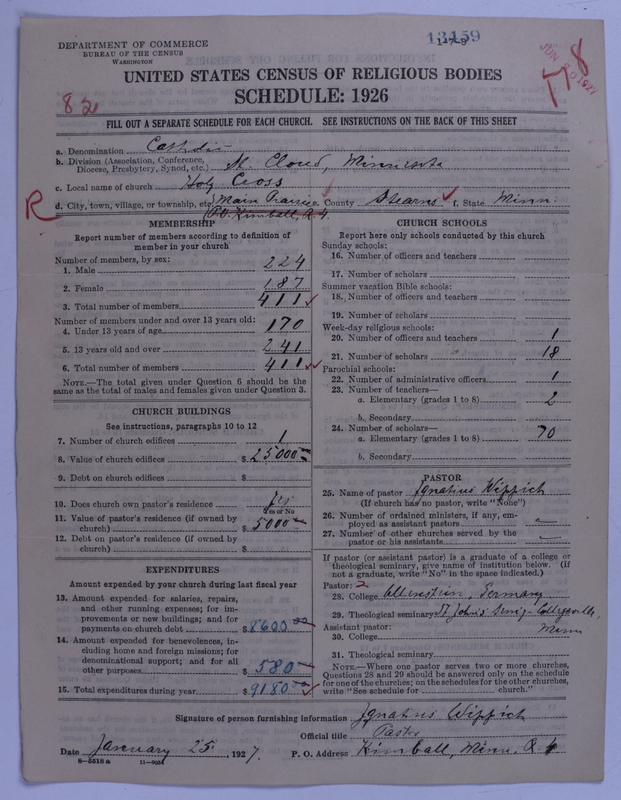 DEPARTMENT OF COMMERCE
BUREAU OF THE CENSUS
WASHINGTON
13459
1-79
JUN 20 1927
T8
UNITED STATES CENSUS OF RELIGIOUS BODIES
SCHEDULE: 1926
82
FILL OUT A SEPARATE SCHEDULE FOR EACH CHURCH. SEE INSTRUCTIONS ON THE BACK OF THIS SHEET
a. Denomination Catholic
b. Division (Association, Conference, Diocese, Presbytery, Synod, etc.) St. Cloud, Minnesota
c. Local name of church Holy Cross
R
d. City, town, village, or township, etc. Main Prairie e. County Stearns f. State Minn.
P.O. Kimball, R 4.
MEMBERSHIP
Report number of members according to definition of
member in your church
Number of members, by sex:
1. Male 224
2. Female 187
3. Total number of members 411
Number of members under and over 13 years old:
4. Under 13 years of age 170
5. 13 years old and over 241
6. Total number of members 411
NOTE.—The total given under Question 6 should be the
same as the total of males and females given under Question 3.
CHURCH BUILDINGS
See instructions, paragraphs 10 to 12
7. Number of church edifices 1
8. Value of church edifices $ 25000
9. Debt on church edifices $
10. Does church own pastor's residence Yes
Yes or No
11. Value of pastor's residence (if owned by
church) $ 5000
12. Debt on pastor's residence (if owned by
church) $
EXPENDITURES
Amount expended by your church during last fiscal year
13. Amount expended for salaries, repairs,
and other running expenses; for im-
provements or new buildings; and for
payments on church debt $ 8600.00
14. Amount expended for benevolences, in-
cluding home and foreign missions; for
denominational support; and for all
other purposes $ 580
15. Total expenditures during year $ 9180.00
CHURCH SCHOOLS
Report here only schools conducted by this church
Sunday schools:
16. Number of officers and teachers
17. Number of scholars
Summer vacation Bible schools:
18. Number of officers and teachers
19. Number of scholars
Week-day religious schools:
20. Number of officers and teachers 1
21. Number of scholars 18
Parochial schools:
22. Number of administrative officers 1
23. Number of teachers—
a. Elementary (grades 1 to 8) 2
b. Secondary
24. Number of scholars—
a. Elementary (grades 1 to 8) 70
b. Secondary
PASTOR
25. Name of pastor Ignatius Wippich
(If church has no pastor, write "None")
26. Number of ordained ministers, if any, em-
ployed as assistant pastors
27. Number of other churches served by the
pastor or his assistants
If pastor (or assistant pastor) is a graduate of a college or
theological seminary, give name of institution below. (If
not a graduate, write "No" in the space indicated.)
Pastor: 2
28. College Allenstein, Germany
29. Theological seminary St John's Collegeville,
Assistant pastor: Minn
30. College
31. Theological seminary
NOTE.—Where one pastor serves two or more churches,
Questions 28 and 29 should be answered only on the schedule
for one of the churches; on the schedules for the other churches,
write "See schedule for church."
Signature of person furnishing information Ignatius Wippich
Official title Pastor
Date January 25, 1927. P. O. Address Kimball, Minn, R 4
8—5518a 11—9034